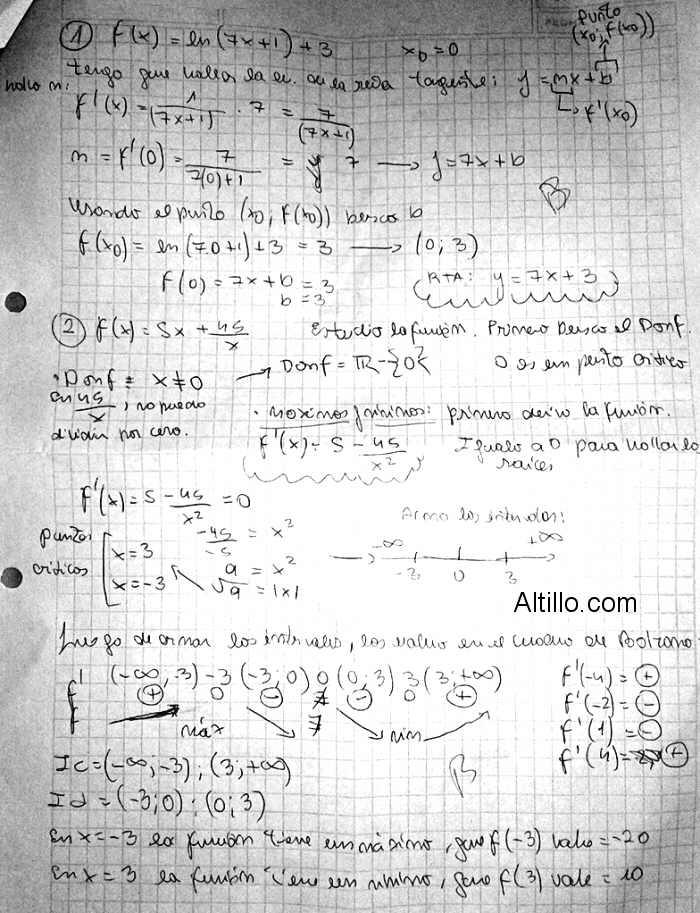 punto
(x0, f(x0))
① f(x) = ln(7x+1)+3 x0=0
tengo que hallar la ec. de la recta tangente: y = mx+b
hallo m:
f'(x0)
f'(x) = 1/(7x+1) . 7 = 7/(7x+1)
m = f'(0) = 7/(7(0)+1) = 7 → y=7x+b
B
Usando el punto (x0, f(x0)) busco b
f(x0) = ln(7.0+1)+3 = 3 → (0; 3)
f(0) = 7x+b = 3
b = 3
RTA: y = 7x+3
② f(x) = 5x + 45/x Estudio la función. Primero busco el Domf.
• Domf = x≠0 → Domf = ℝ-{0} 0 es un punto critico
en 45/x, no puedo
dividir por cero.
• Maximos y minimos: primero derivo la función.
f'(x) = 5 - 45/x² Igualo a 0 para hallar las
raíces
f'(x) = 5 - 45/x² = 0
-45/-5 = x²
9 = x²
√9 = |x|
puntos
criticos
x=3
x=-3
Armo los intervalos:
-∞ +∞
-3 0 3
Altillo.com
Luego de armar los intervalos, los evaluo en el cuadro de Bolzano
(-∞, -3) -3 (-3; 0) 0 (0; 3) 3 (3; +∞)
f' + 0 - ∄ - 0 +
f máx ∄ min
f'(-4) = +
f'(-2) = -
f'(1) = -
f'(4) = +
Ic = (-∞; -3); (3; +∞)
B
Id = (-3; 0); (0; 3)
En x=-3 la función tiene un máximo, que f(-3) vale = -20
En x = 3 la función tiene un minimo, que f(3) vale = 10